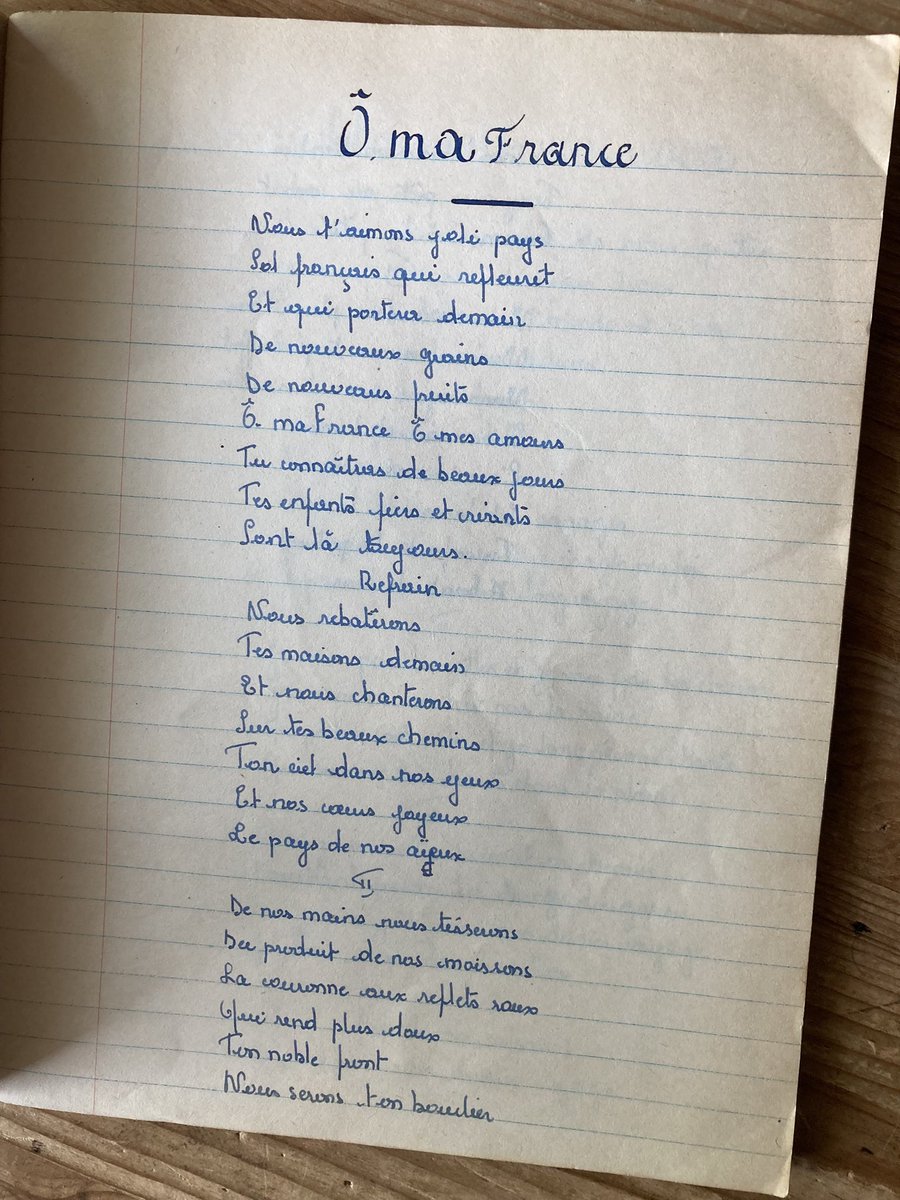 Ô, ma France
Nous t'aimons joli pays
Sol français qui refleurit
Et qui portera demain
De nouveaux grains
De nouveaus fruits
Ô. ma France Ô mes amours
Tu connaîtras de beaux jours
Tes enfants fiers et crirants
Sont là toujours.
Refrain
Nous rebatirons
Tes maisons demain
Et nous chanterons
Sur tes beaux chemins
Ton ciel dans nos yeux
Et nos cœurs joyeux
Le pays de nos aïeux
II
De nos mains nous tisserons
Du produit de nos moissons
La couronne aux reflets roux
Qui rend plus doux
Ton noble front
Nous serons ton bouclier